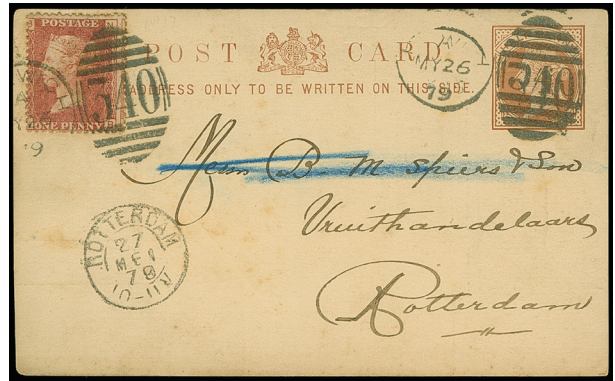 POSTAGE
ONE PENNY
340
POST CARD
ADDRESS ONLY TO BE WRITTEN ON THIS SIDE.
MY 26
79
340
Messrs B. M. Spiers & Son
Vruithandelaars
Rotterdam
ROTTERDAM
27
MEI
79